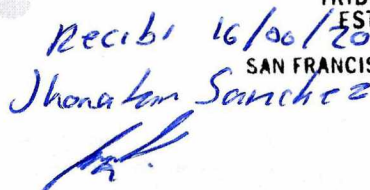 TRIB
Recibi 16/06/20
EST
SAN FRANCIS
Jhonatan Sanchez